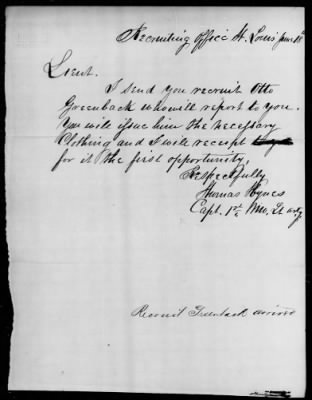 Recruiting Office St. Louis June 18
Lieut.
I send you recruit Otto
Greenback who will report to you.
You will issue him the necessary
Clothing and I will receipt
for it the first opportunity,
Respectfully
Thomas Hynes
Capt. 1st Mo. Lt arty
Recruit Greenback arrived